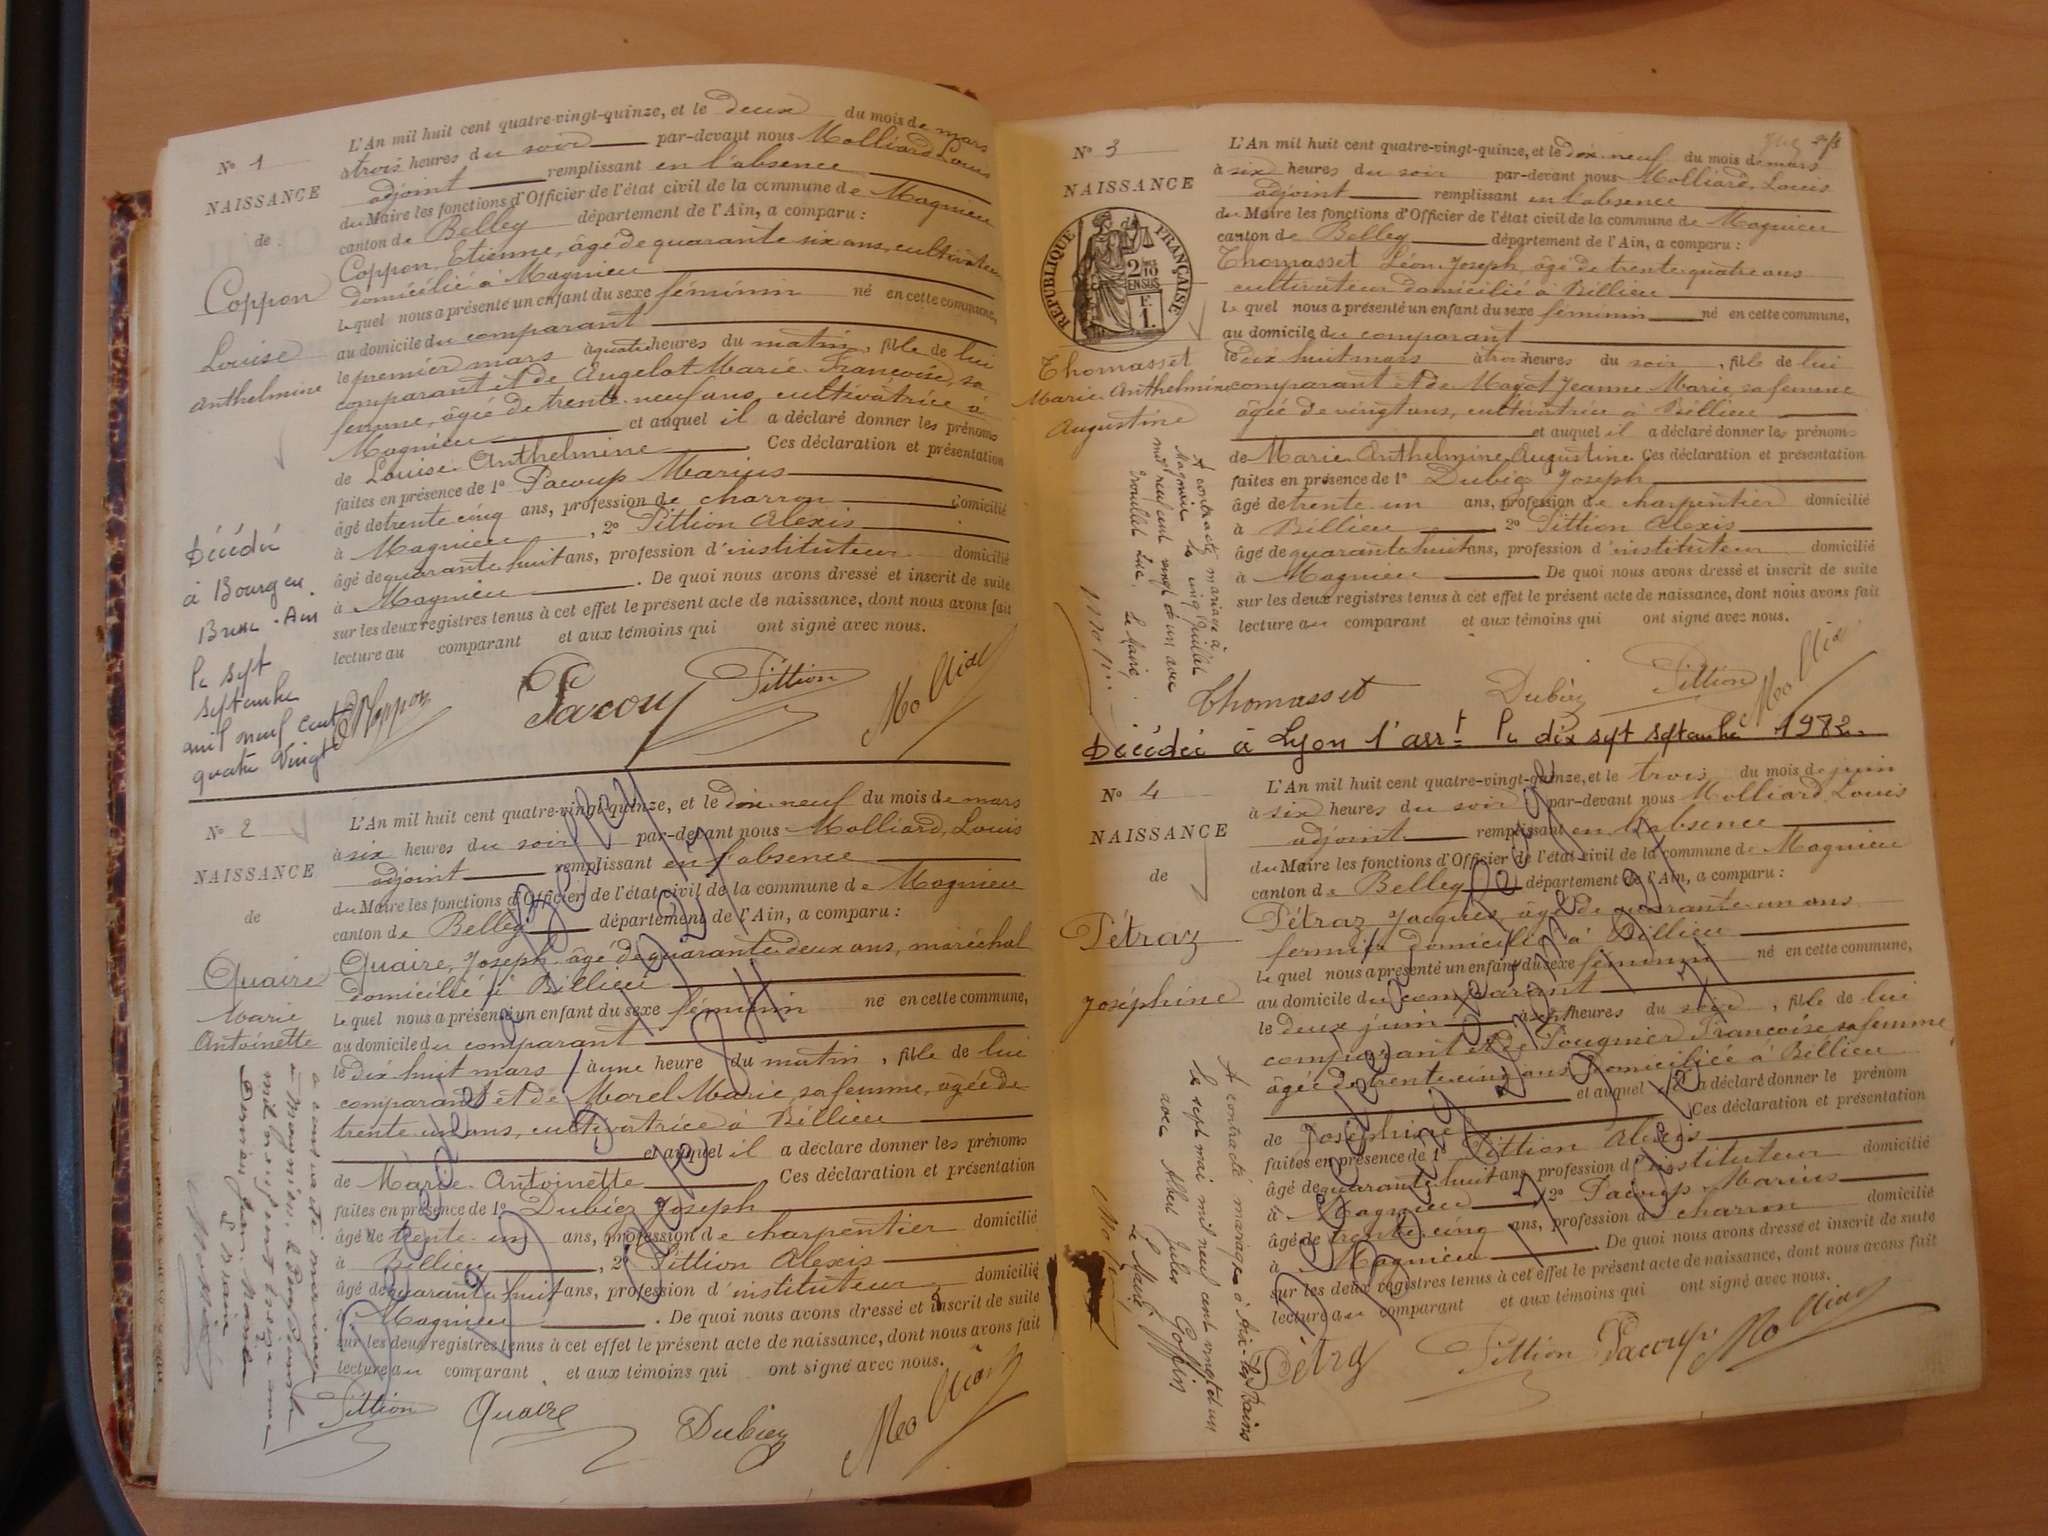 N° 1
NAISSANCE
de
Coppon
Louise
Anthelmine
L'An mil huit cent quatre-vingt-quinze, et le deux du mois de mars
à trois heures du soir par-devant nous Molliard Louis
adjoint remplissant en l'absence
du Maire les fonctions d'Officier de l'état civil de la commune de Magnieu
canton de Belley département de l'Ain, a comparu :
Coppon, Etienne, âgé de quarante six ans, cultivateur
domicilié à Magnieu
le quel nous a présenté un enfant du sexe féminin né en cette commune,
au domicile du comparant
le premier mars à quatre heures du matin, fille de lui
comparant et de Angelot Marie Françoise, sa
femme, âgée de trente-neuf ans, cultivatrice à
Magnieu et auquel il a déclaré donner les prénoms
de Louise Anthelmine. Ces déclaration et présentation
faites en présence de 1° Pacoup Marius
âgé de trente cinq ans, profession de charron domicilié
à Magnieu, 2° Pittion Alexis
âgé de quarante huit ans, profession d'instituteur domicilié
à Magnieu. De quoi nous avons dressé et inscrit de suite
sur les deux registres tenus à cet effet le présent acte de naissance, dont nous avons fait
lecture au comparant et aux témoins qui ont signé avec nous.
Décédée
à Bourg en
Bresse - Ain
le sept
septembre
mil neuf cent
quatre vingt
Coppon Pacoup Pittion Molliard
N° 2
NAISSANCE
de
Quaire
Marie
Antoinette
L'An mil huit cent quatre-vingt-quinze, et le dix neuf du mois de mars
à six heures du soir par-devant nous Molliard, Louis
adjoint remplissant en l'absence
du Maire les fonctions d'Officier de l'état civil de la commune de Magnieu
canton de Belley département de l'Ain, a comparu :
Quaire, Joseph âgé de quarante deux ans, maréchal
domicilié à Billieu
le quel nous a présenté un enfant du sexe féminin né en cette commune,
au domicile du comparant
le dix huit mars à une heure du matin, fille de lui
comparant et de Morel Marie, sa femme, âgée de
trente-un ans, cultivatrice à Billieu
et auquel il a déclaré donner les prénoms
de Marie Antoinette. Ces déclaration et présentation
faites en présence de 1° Dubiez Joseph
âgé de trente un ans, profession de charpentier domicilié
à Billieu, 2° Pittion Alexis
âgé de quarante huit ans, profession d'instituteur domicilié
à Magnieu. De quoi nous avons dressé et inscrit de suite
sur les deux registres tenus à cet effet le présent acte de naissance, dont nous avons fait
lecture au comparant et aux témoins qui ont signé avec nous.
a contracté mariage
à Magnieu, le
mil neuf cent treize avec
Le Maire
Décédée à Belley
Pittion Quaire Dubiez Molliard
N° 3
NAISSANCE
RÉPUBLIQUE FRANÇAISE
2 10
EN SUS
E.
1.
Thomasset
Marie Anthelmine
Augustine
L'An mil huit cent quatre-vingt-quinze, et le dix neuf du mois de mars
à six heures du soir par-devant nous Molliard, Louis
adjoint remplissant en l'absence
du Maire les fonctions d'Officier de l'état civil de la commune de Magnieu
canton de Belley département de l'Ain, a comparu :
Thomasset Léon Joseph, âgé de trente quatre ans
cultivateur domicilié à Billieu
le quel nous a présenté un enfant du sexe féminin né en cette commune,
au domicile du comparant
le dix huit mars à trois heures du soir, fille de lui
comparant et de Mayot Jeanne Marie, sa femme
âgée de vingt ans, cultivatrice à Billieu
et auquel il a déclaré donner les prénoms
de Marie Anthelmine Augustine. Ces déclaration et présentation
faites en présence de 1° Dubiez Joseph
âgé de trente un ans, profession de charpentier domicilié
à Billieu, 2° Pittion Alexis
âgé de quarante huit ans, profession d'instituteur domicilié
à Magnieu. De quoi nous avons dressé et inscrit de suite
sur les deux registres tenus à cet effet le présent acte de naissance, dont nous avons fait
lecture au comparant et aux témoins qui ont signé avec nous.
A contracté mariage à
Magnieu le cinq juillet
mil neuf cent vingt et un avec
Le Maire
Thomasset Dubiez Pittion Molliard
Décédée à Lyon 1er arrt le dix sept septembre 1982.
N° 4
NAISSANCE
de
Pétraz
Joséphine
L'An mil huit cent quatre-vingt-quinze, et le trois du mois de juin
à six heures du soir par-devant nous Molliard, Louis
adjoint remplissant en l'absence
du Maire les fonctions d'Officier de l'état civil de la commune de Magnieu
canton de Belley département de l'Ain, a comparu :
Pétraz Jacques, âgé de quarante un ans
fermier domicilié à Billieu
le quel nous a présenté un enfant du sexe féminin né en cette commune,
au domicile du comparant
le deux juin à sept heures du soir, fille de lui
comparant et de Pougnier Françoise sa femme
âgée de trente cinq ans domiciliée à Billieu
et auquel il a déclaré donner le prénom
de Joséphine. Ces déclaration et présentation
faites en présence de 1° Pittion Alexis
âgé de quarante huit ans, profession d'instituteur domicilié
à Magnieu 2° Pacoup Marius
âgé de trente cinq ans, profession de charron domicilié
à Magnieu. De quoi nous avons dressé et inscrit de suite
sur les deux registres tenus à cet effet le présent acte de naissance, dont nous avons fait
lecture au comparant et aux témoins qui ont signé avec nous.
A contracté mariage à Aix-les-Bains
le sept mai mil neuf cent vingt et un
avec Albert Jules Goffin
Le Maire
Pétraz Pittion Pacoup Molliard